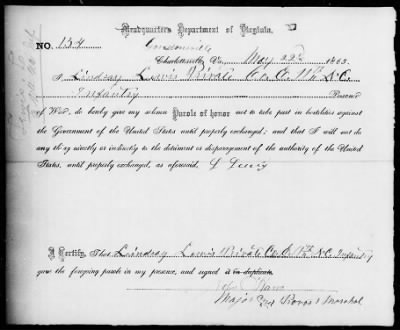 Headquarters Department of Virginia,
NO. 134
Greensville
Charlottesville, Va., May 22d 1865.
I Lindsay Lewis Private Co. A N.C.
Infantry Prisoner
of War, do hereby give my solemn Parole of honor not to take part in hostilities against
the Government of the United States until properly exchanged; and that I will not do
any thing directly or indirectly to the detriment or disparagement of the authority of the United
States, until properly exchanged, as aforesaid. L Lewis
I Certify, That Lindsay Lewis Private Co. A N.C. Infantry
gave the foregoing parole in my presence, and signed it in duplicate.
Major and Provost Marshal